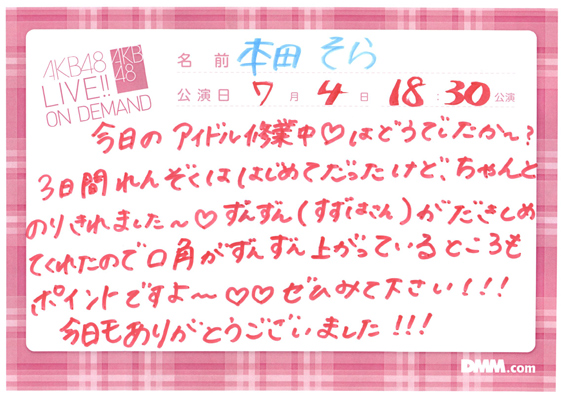 AKB48
LIVE!!
ON DEMAND
AKB
48
名前 本田 そら
公演日 7月4日 18:30公演
今日の アイドル修業中♡はどうでしたか〜?
3日間れんぞくははじめてだったけど、ちゃんと
のりきれました〜♡ずんずん(すずはさん)がだきしめ
てくれたので口角がずんずん上がっているところも
ポイントですよ〜♡♡ぜひみて下さい!!!
今日もありがとうございました!!!
DMM.com